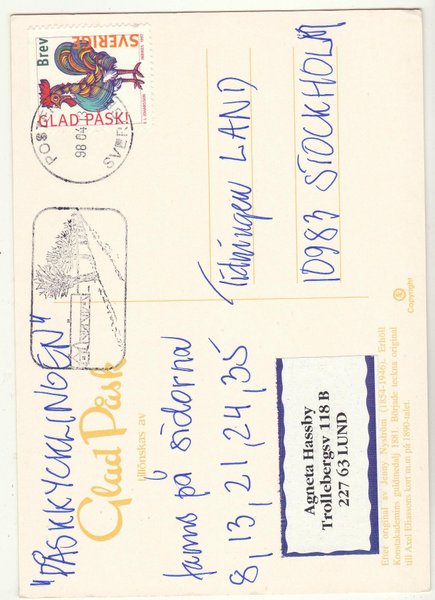 "PÅSKKYCKLINGEN"
Glad Påsk
tillönskas av
fanns på sidorna
8, 13, 21, 24, 35
Agneta Hassby
Trollebergsv 118 B
227 63 LUND
Efter original av Jenny Nyström (1854-1946). Erhöll
Konstakademins guldmedalj 1881. Började teckna original
till Axel Eliassons kort m.m på 1890-talet.
Brev
SVERIGE
GLAD PÅSK!
98 04
Tidningen LAND
10983 STOCKHOLM
Copyright